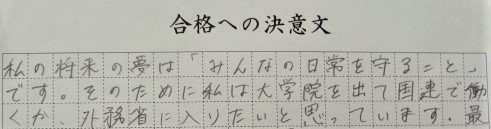 合格への決意文
私の将来の夢は「みんなの日常を守ること」
です。そのために私は大学院を出て国連で働
くか、外務省に入りたいと思っています。最